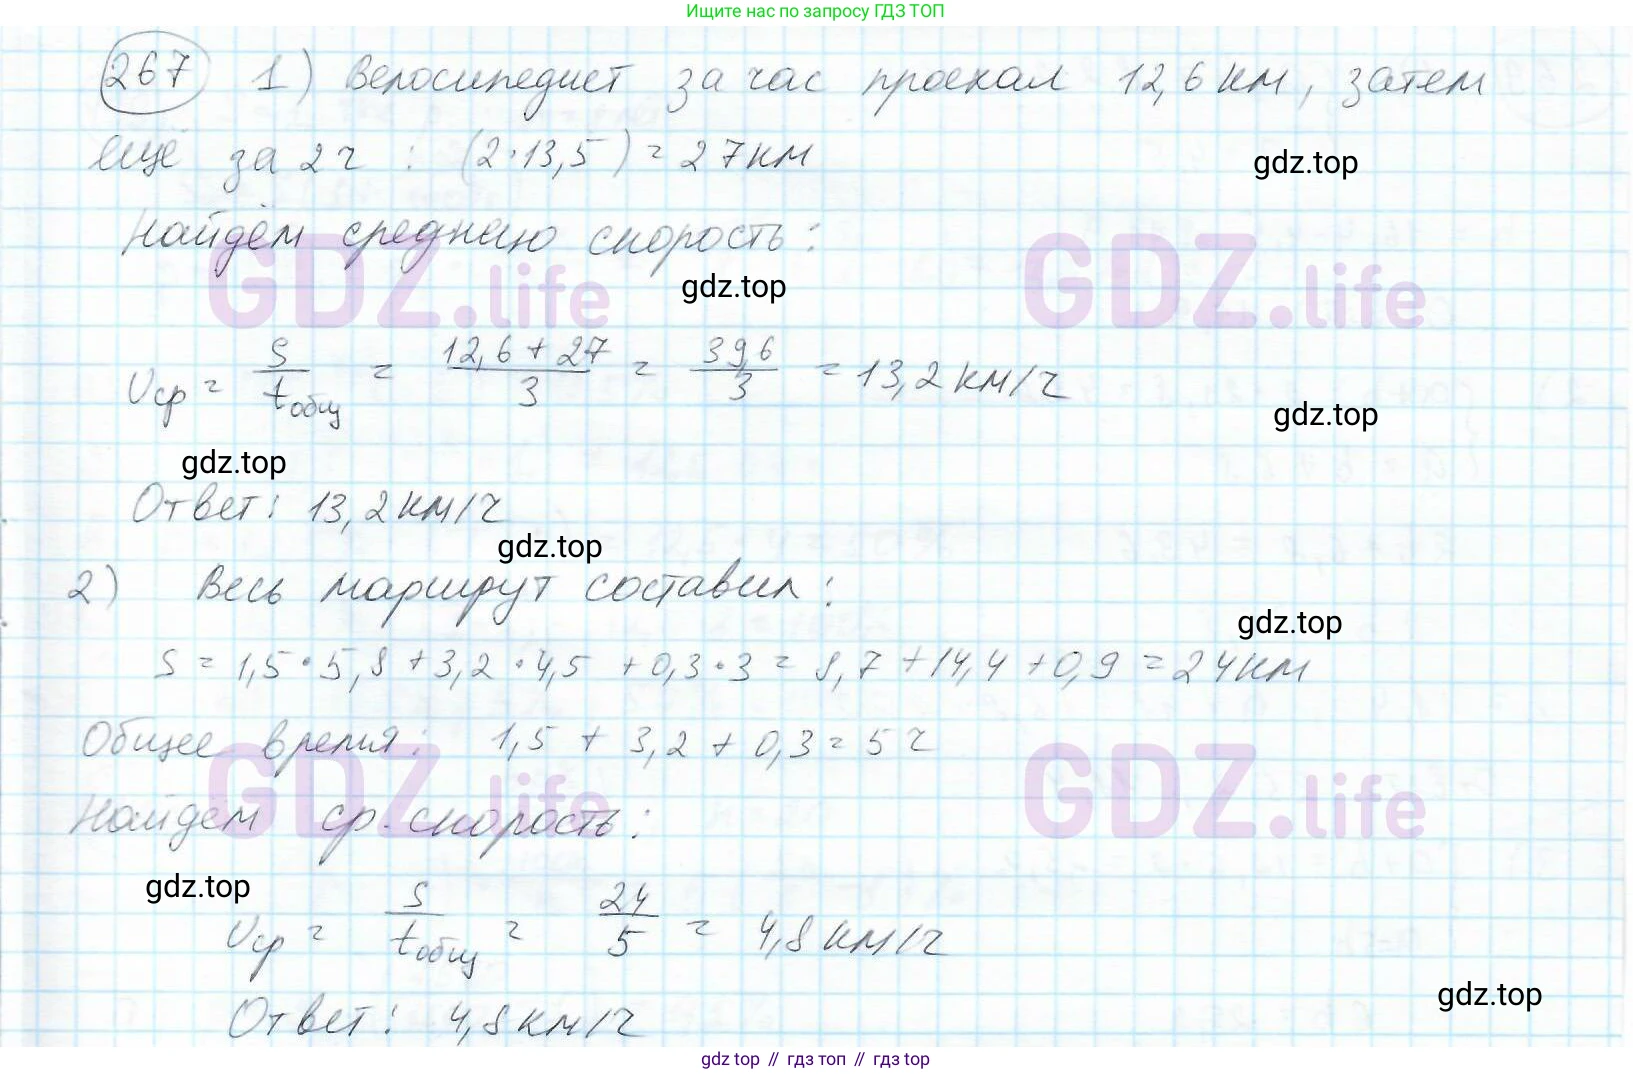 Ищите нас по запросу ГДЗ ТОП
267 1) Велосипедист за час проехал 12,6 км, затем
ещё за 2 ч : (2·13,5) = 27 км
gdz.top
Найдём среднюю скорость:
GDZ.life GDZ.life
gdz.top
Vср = S/tобщ = 12,6 + 27/3 = 39,6/3 = 13,2 км/ч
gdz.top
gdz.top
Ответ: 13,2 км/ч
gdz.top
2) Весь маршрут составил:
gdz.top
S = 1,5·5,8 + 3,2·4,5 + 0,3·3 = 8,7 + 14,4 + 0,9 = 24 км
Общее время: 1,5 + 3,2 + 0,3 = 5 ч
GDZ.life GDZ.life
Найдём ср. скорость:
gdz.top
Vср = S/tобщ = 24/5 = 4,8 км/ч
gdz.top
Ответ: 4,8 км/ч
gdz top // гдз топ // гдз top